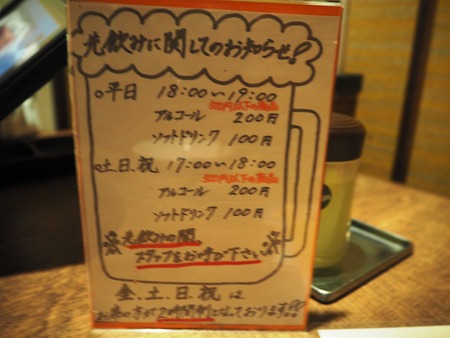 先飲みに関してのお知らせ!
○平日 18:00〜19:00
500円以下の商品
アルコール 200円
ソフトドリンク 100円
○土、日、祝 17:00〜18:00
500円以下の商品
アルコール 200円
ソフトドリンク 100円
※先飲みの間、
スタッフをお呼び下さい※
金、土、日、祝は
2時間制となっております!!